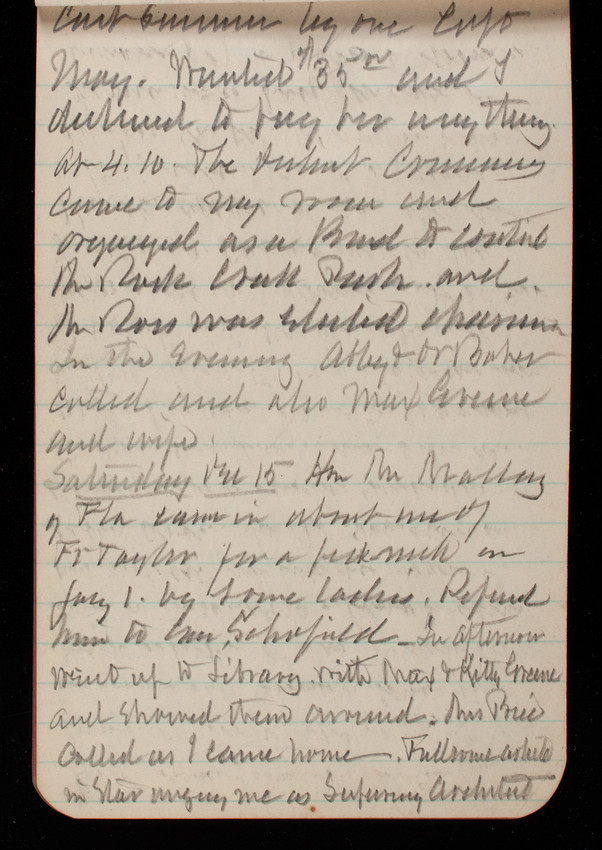 last Summer by one Capt
May. Wanted $35 00 and I
declined to pay her anything.
At 4.10. The District Commissioners
came to my room and
organized as a Board to control
the Rock Creek Park. and.
Mr Ross was elected chairman
In the Evening Abby & Dr Baker
called and also Max Greene
and wife.
Saturday Dec 15. Hon Mr Mallory
of Fla came in about use of
Ft Taylor for a picknick on
Jany 1. by some ladies. Referred
him to Genl Schofield – In afternoon
went up to Library with Max & Kitty Greene
and showed them around. Mrs Price
called as I came home –. Fullsome article
in Star urging me as Supervising Architect